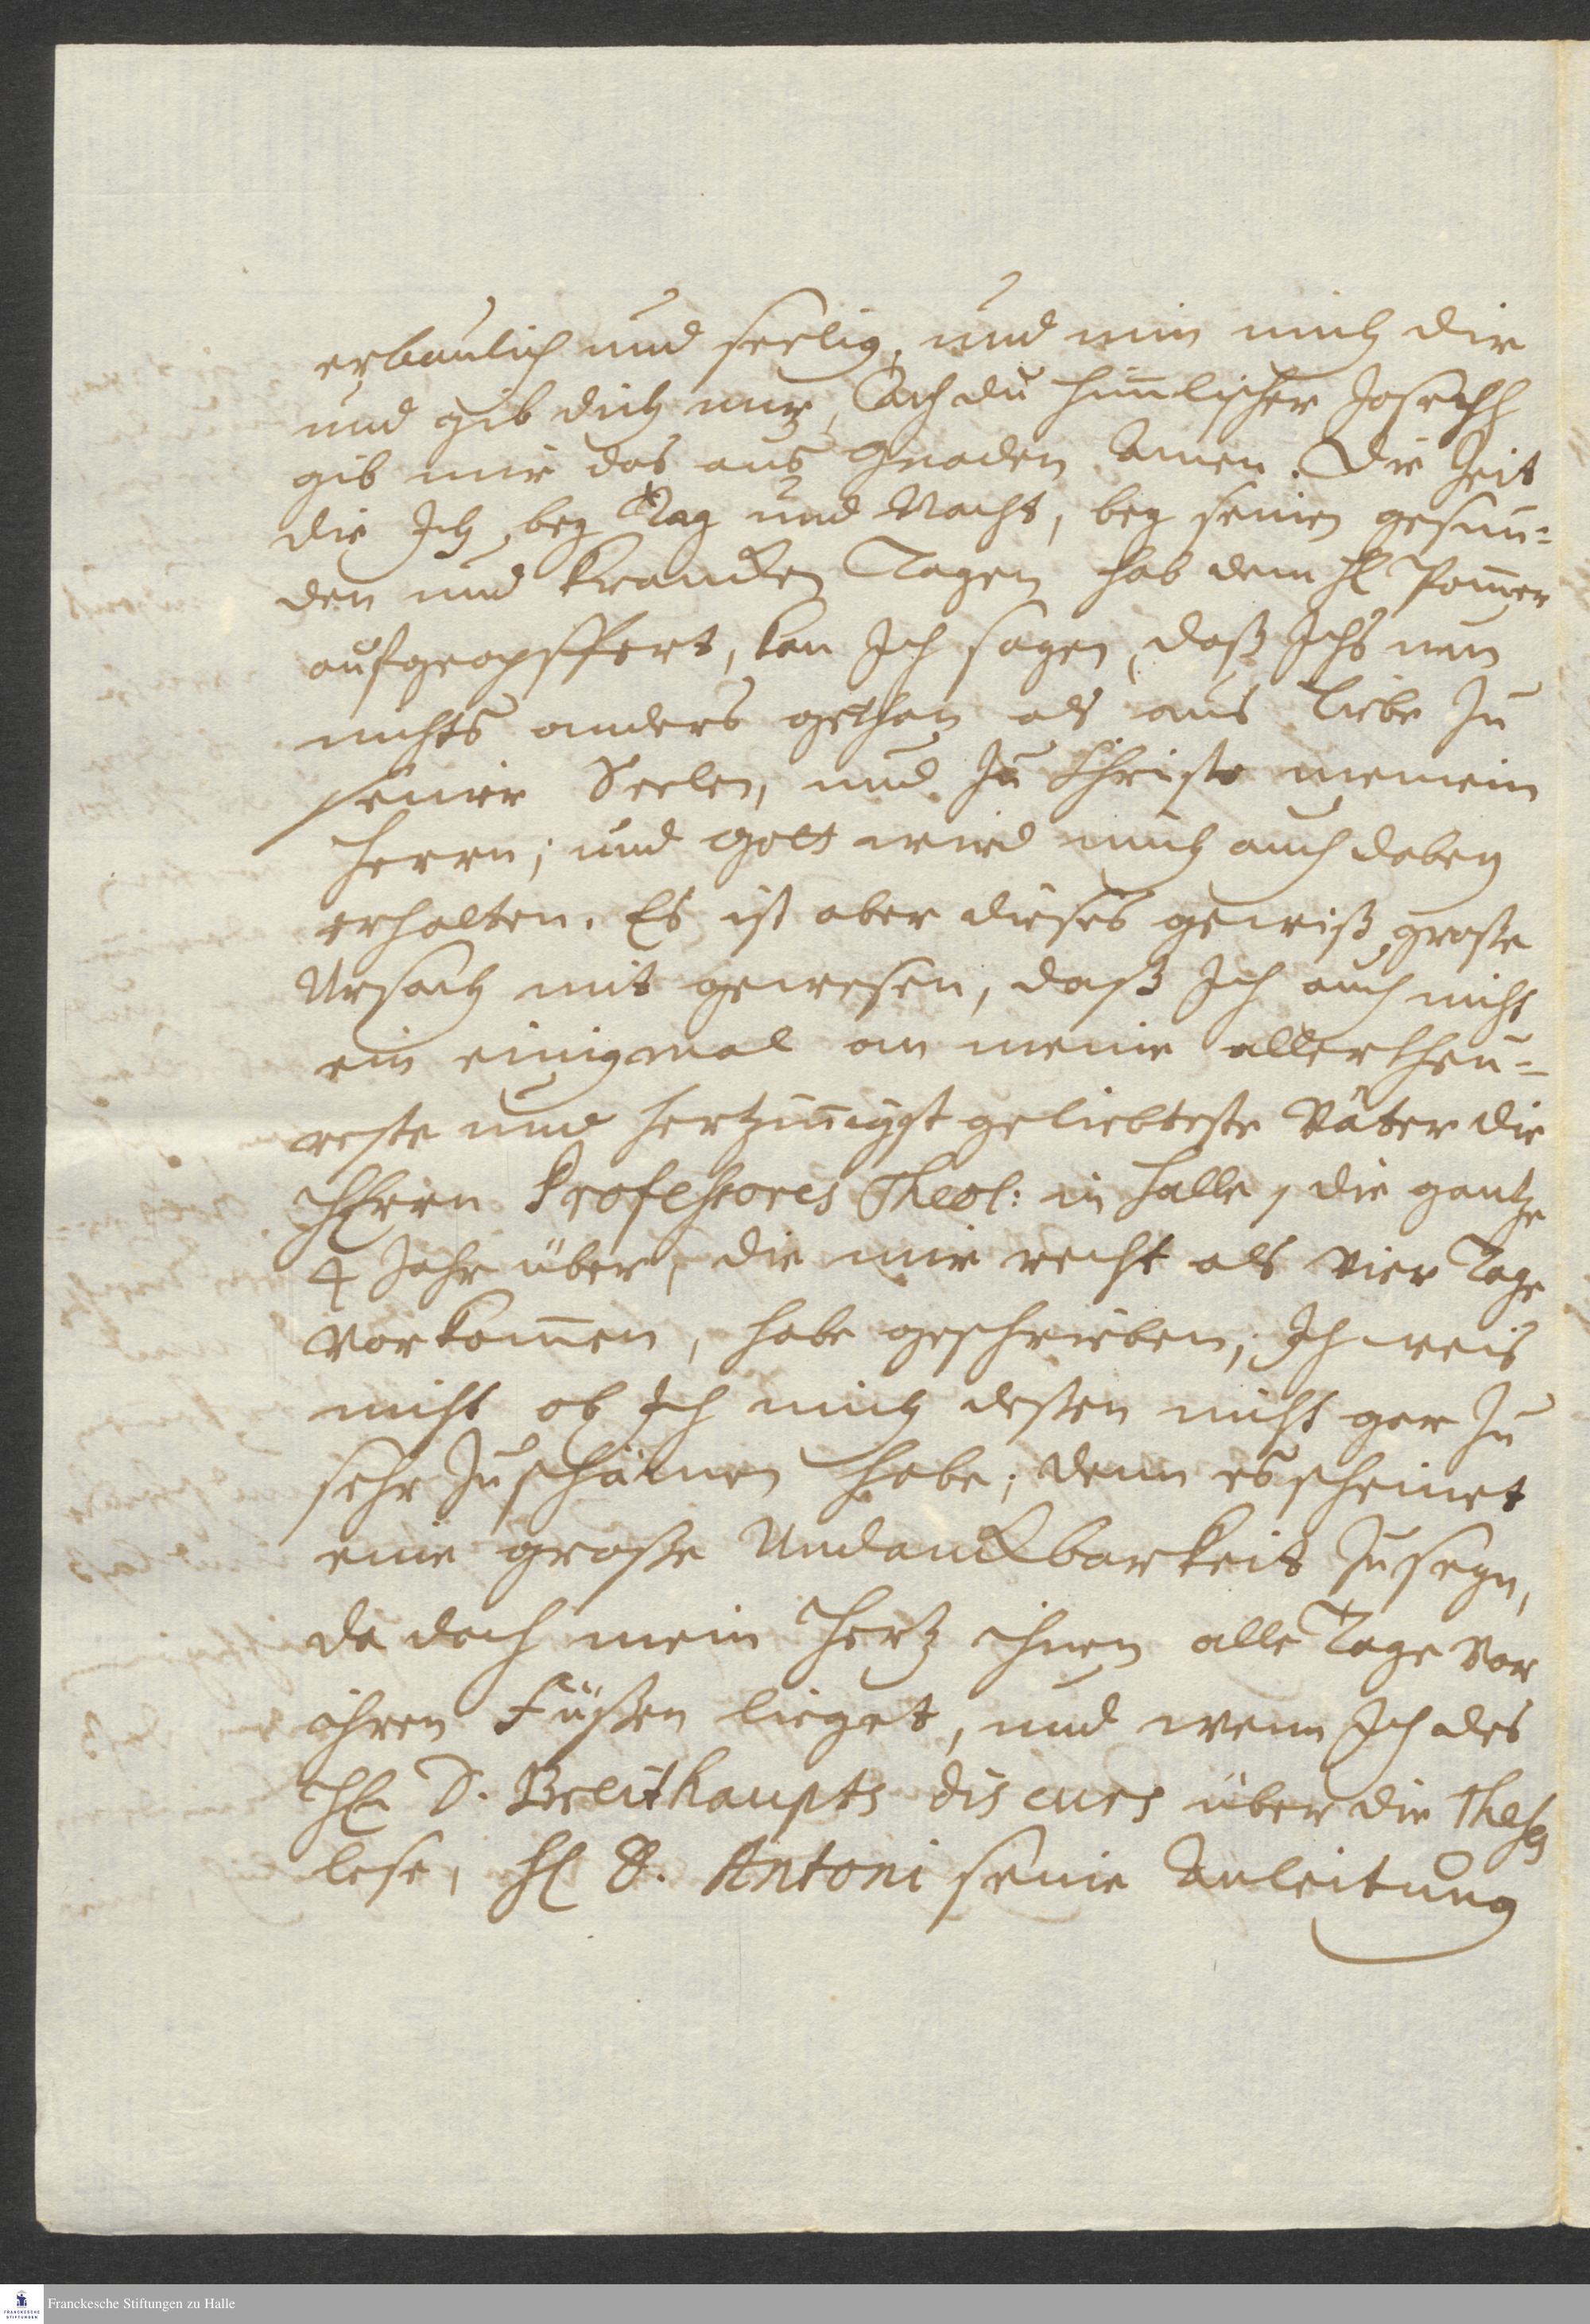 erbaulich und seelig, und nim mich dir
und gib dich mir, Ach du himlischer Joseph
gib mir das aus Gnaden Amen. Die Zeit
die Ich bey Tag und Nacht, bey seinen gesun-
den und krancken Tagen hab dem H Pommer
aufgeopffert, kan Ich sagen, daß Ichs um
nichts anders gethan als aus Liebe zu
seiner Seelen, und zu Christo meinem
Herrn; und Gott wird mich auch dabey
erhalten. Es ist aber dieses gewiß große
Ursach mit gewesen, daß Ich auch nicht
ein einigmal an meine allertheu-
reste und hertzinnigst geliebteste Väter die
HHerrn Professores Theol: in Halle, die gantze
4 Jahr über, die mir recht als vier Tage
vorkommen, habe geschrieben; Ich weis
nicht ob Ich mich deßen nicht gar zu
sehr zuschämen habe; denn es scheinet
eine große Undanckbarkeit zuseyn,
da doch mein Hertz ihnen alle Tage vor
ihren Füßen lieget, und wenn Ich des
H D. Breithaupts discurs über die Theses
lese, H D. Antoni seine Anleitung
Franckesche Stiftungen zu Halle